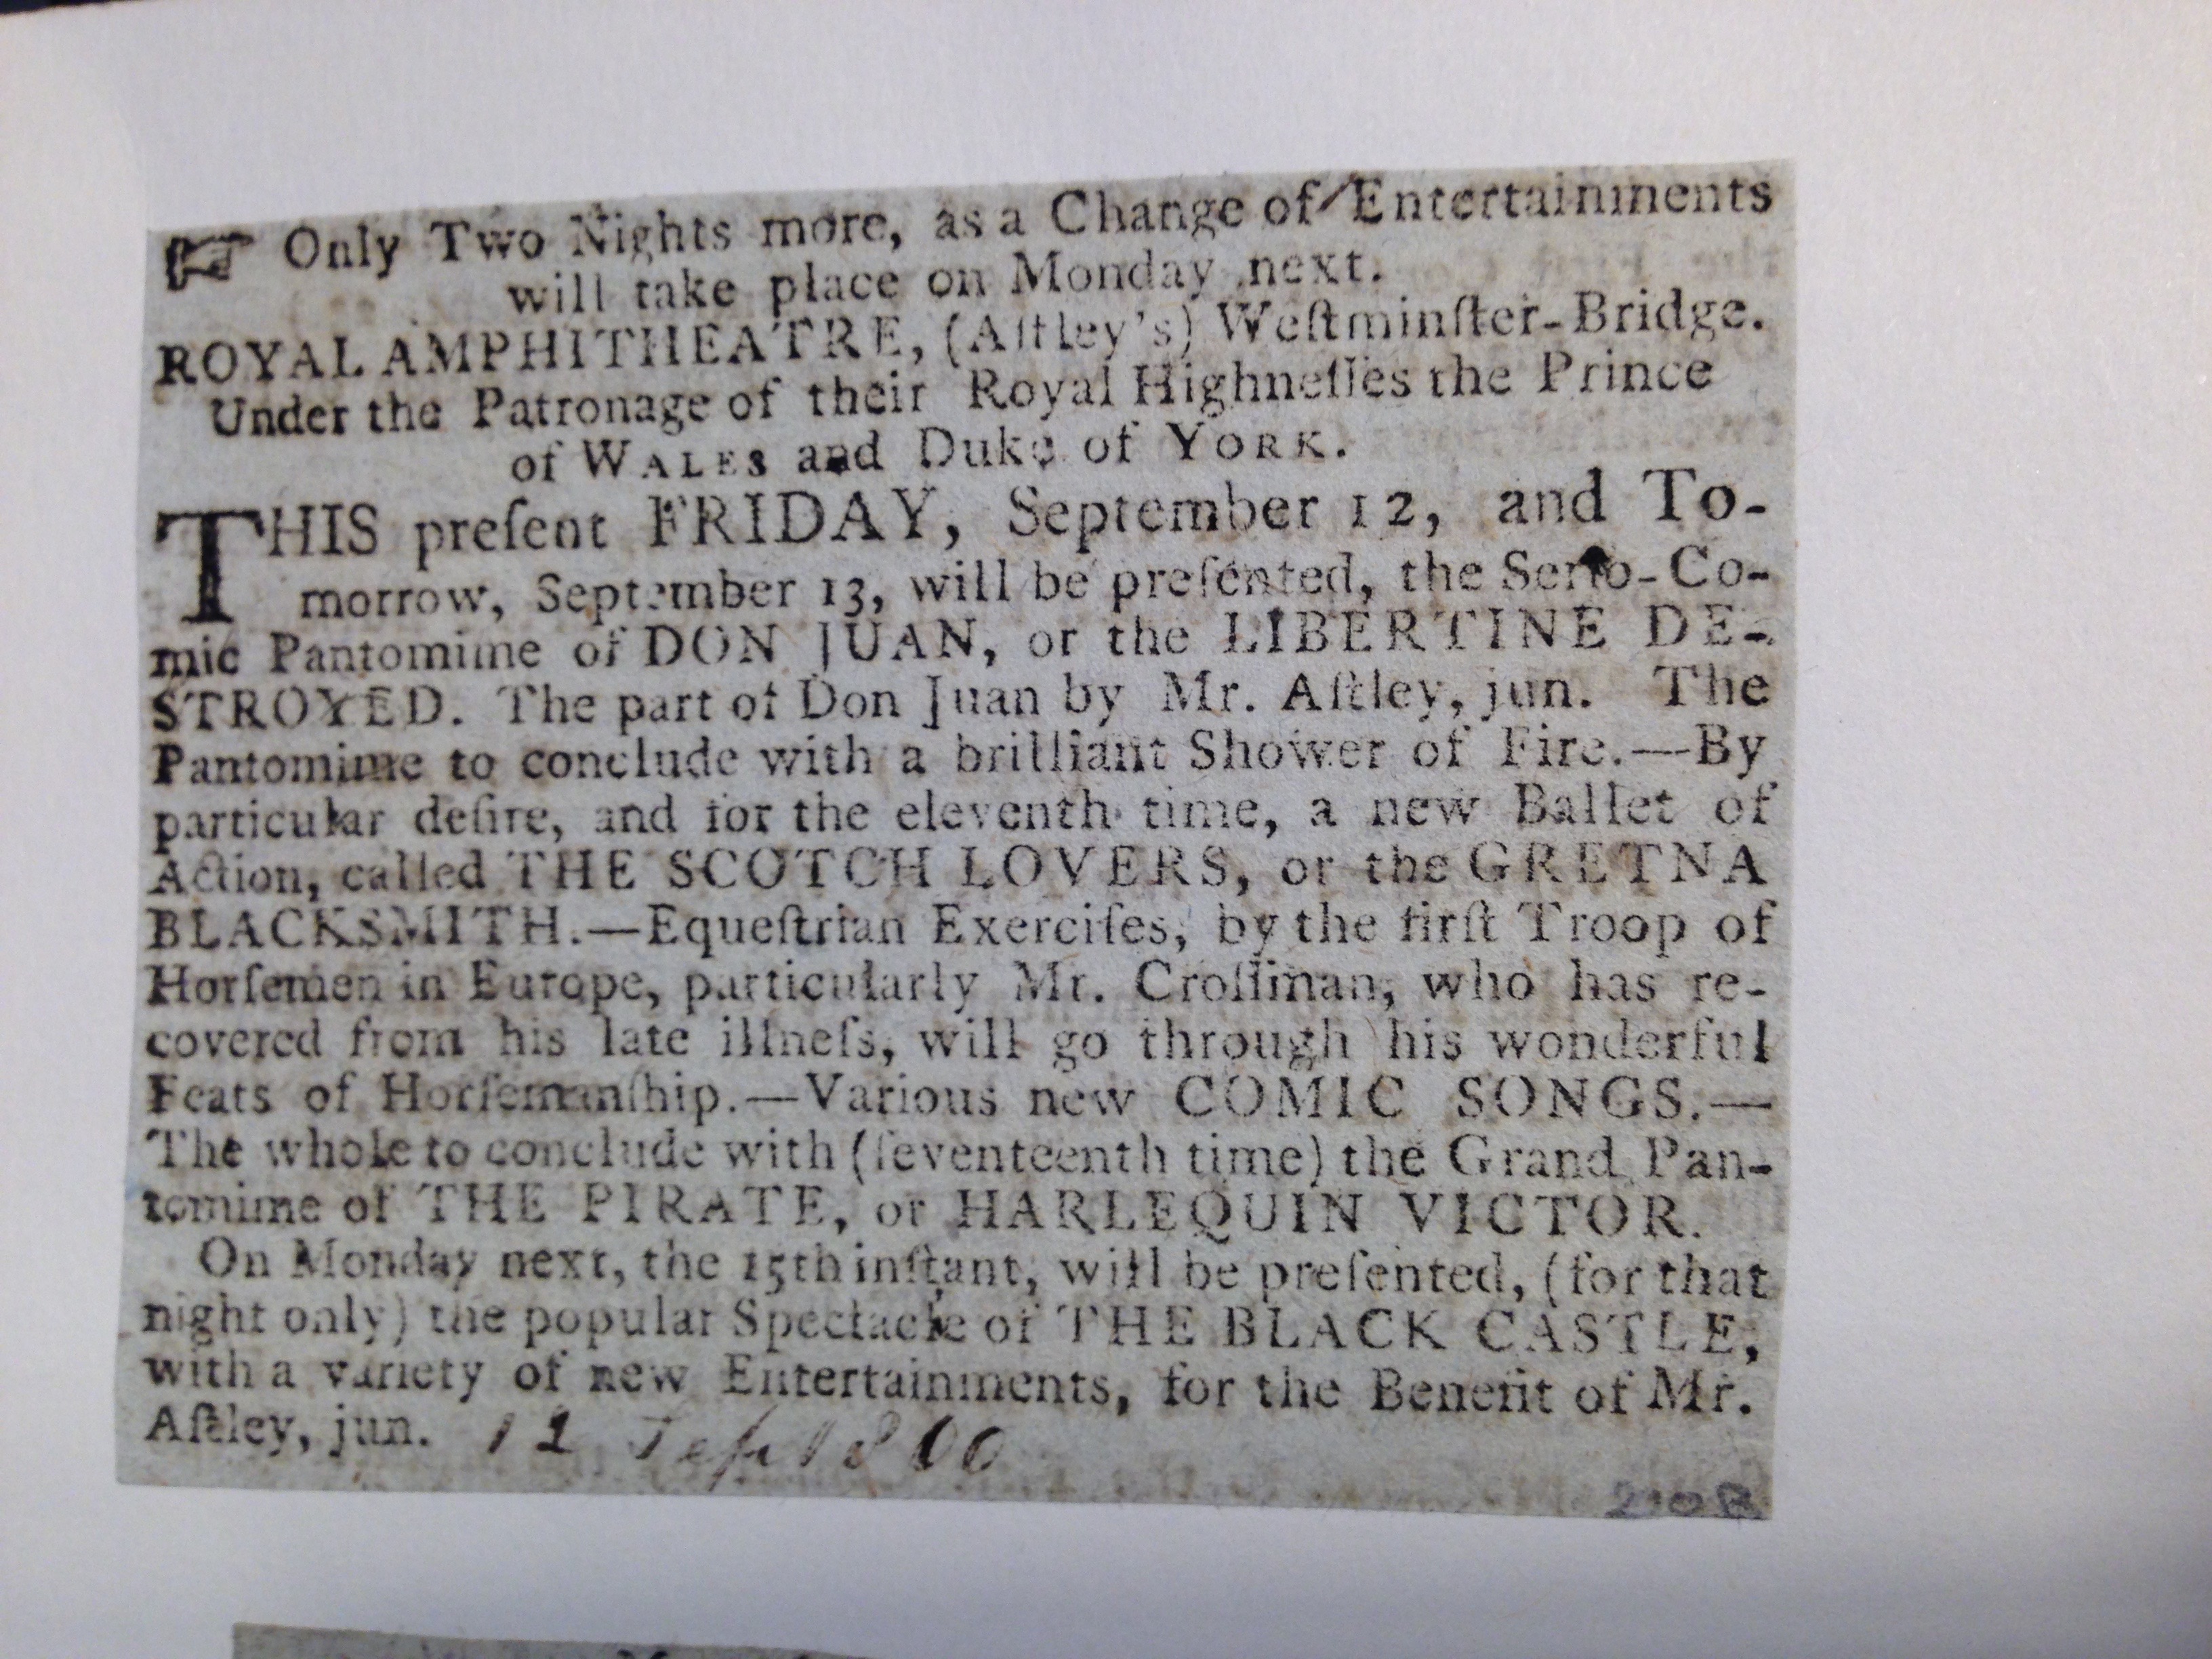 ☞ Only Two Nights more, as a Change of Entertainments
will take place on Monday next.
ROYAL AMPHITHEATRE, (Aſtley's) Weſtminſter-Bridge.
Under the Patronage of their Royal Highneſſes the Prince
of WALES and Duke of YORK.
THIS preſent FRIDAY, September 12, and To-
morrow, September 13, will be preſented, the Serio-Co-
mic Pantomime of DON JUAN, or the LIBERTINE DE-
STROYED. The part of Don Juan by Mr. Aſtley, jun. The
Pantomime to conclude with a brilliant Shower of Fire.—By
particular deſire, and for the eleventh time, a new Ballet of
Action, called THE SCOTCH LOVERS, or the GRETNA
BLACKSMITH.—Equeſtrian Exerciſes, by the firſt Troop of
Horſemen in Europe, particularly Mr. Croſſman, who has re-
covered from his late illneſs, will go through his wonderful
Feats of Horſemanſhip.—Various new COMIC SONGS.—
The whole to conclude with (ſeventeenth time) the Grand Pan-
tomime of THE PIRATE, or HARLEQUIN VICTOR.
On Monday next, the 15th inſtant, will be preſented, (for that
night only) the popular Spectacle of THE BLACK CASTLE,
with a variety of new Entertainments, for the Benefit of Mr.
Aſtley, jun. 12 Sep 1800